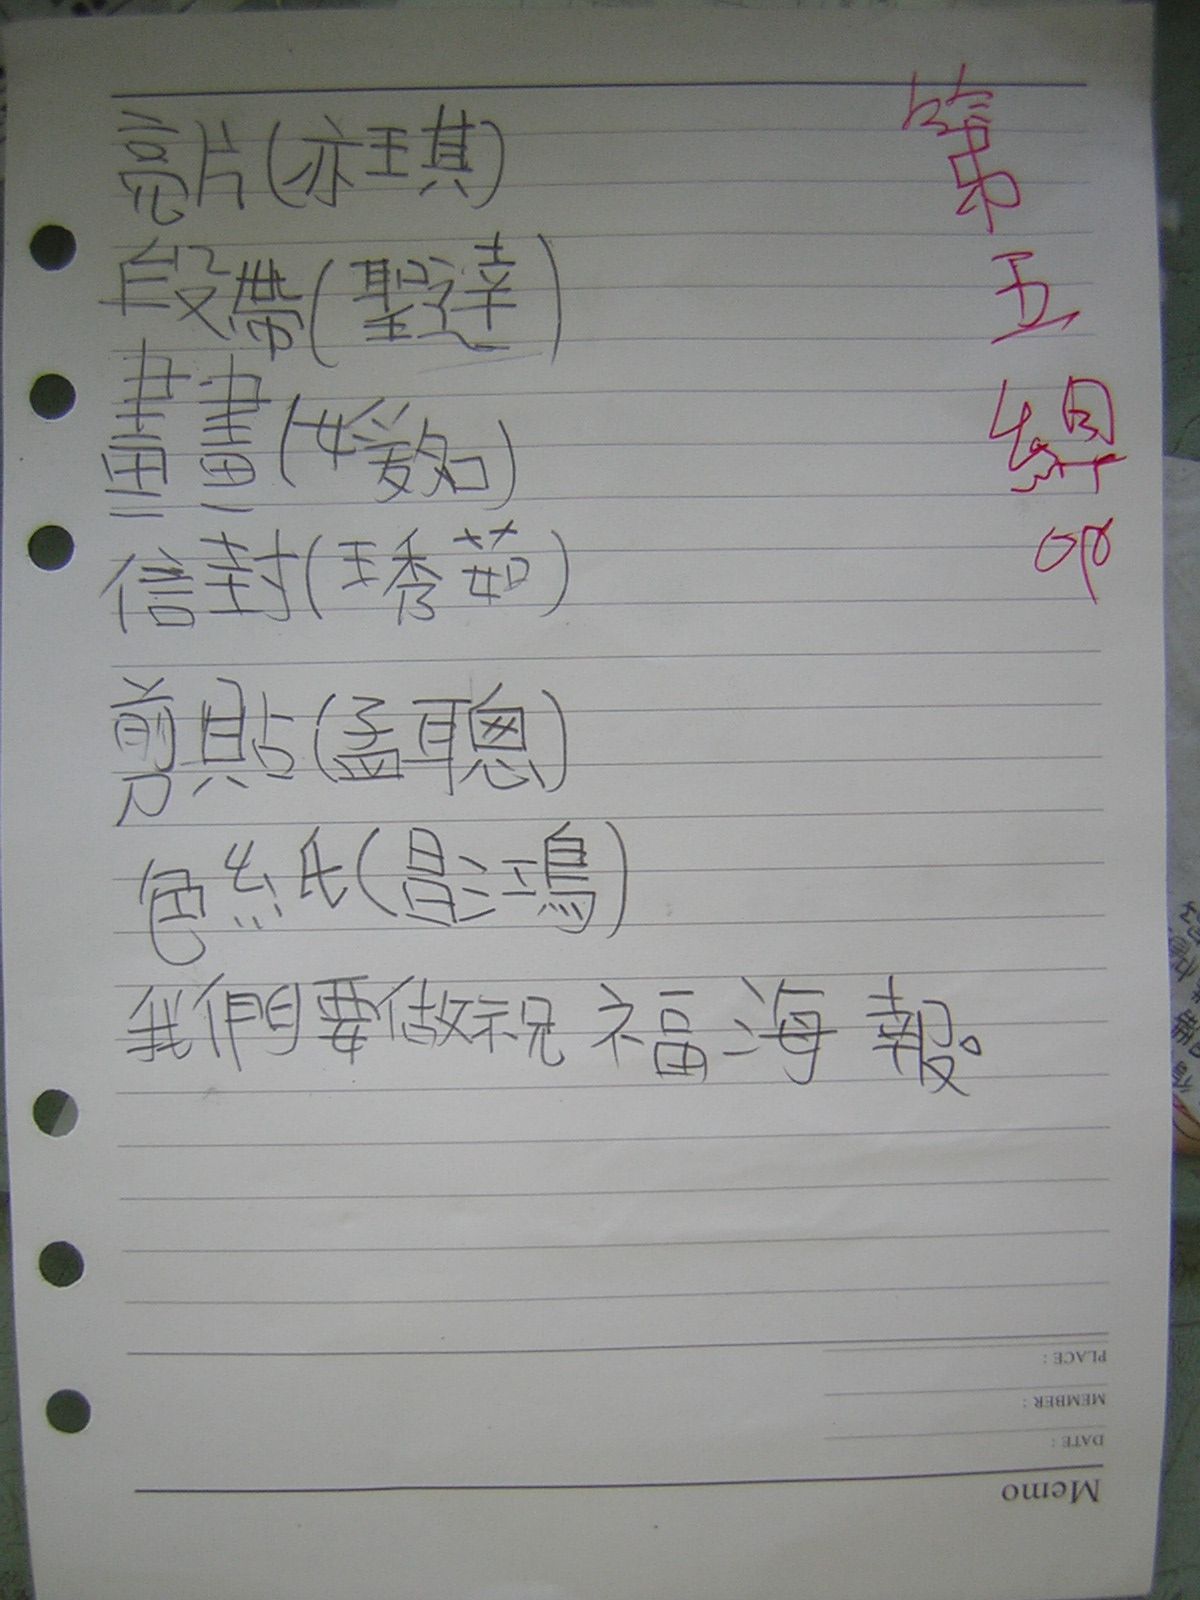 亮片(亦琪)
段帶(聖達)
畫畫(媛如)
信封(琇茹)
剪貼(孟聰)
色紙(昌鴻)
我們要做祝福海報。
第五組
PLACE :
MEMBER :
DATE :
Memo